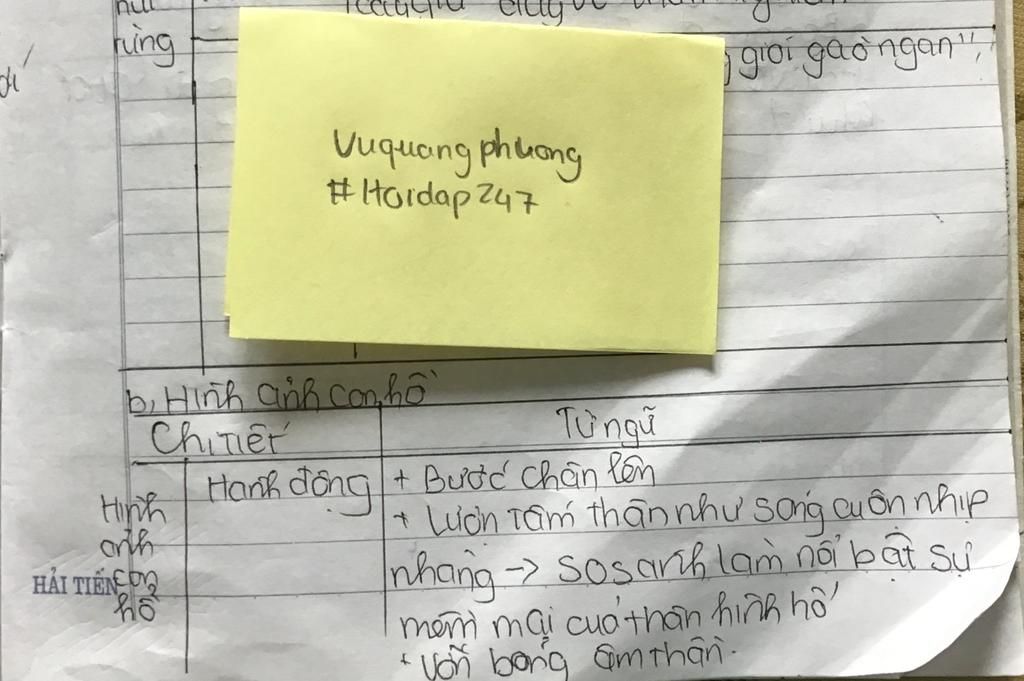 rừng
giới gào ngàn",
Vuquangphuong
#Hoidap247
b, Hình ảnh con hổ
Chi Tiết
Từ ngữ
Hành động
+ Bước chân lên
Hình
+ Lượn tấm thân như sóng cuộn nhịp
ảnh
nhàng -> so sánh làm nổi bật sự
HẢI TIẾN
con
hổ
mềm mại của thân hình hổ
+ Vờn bóng âm thầm.